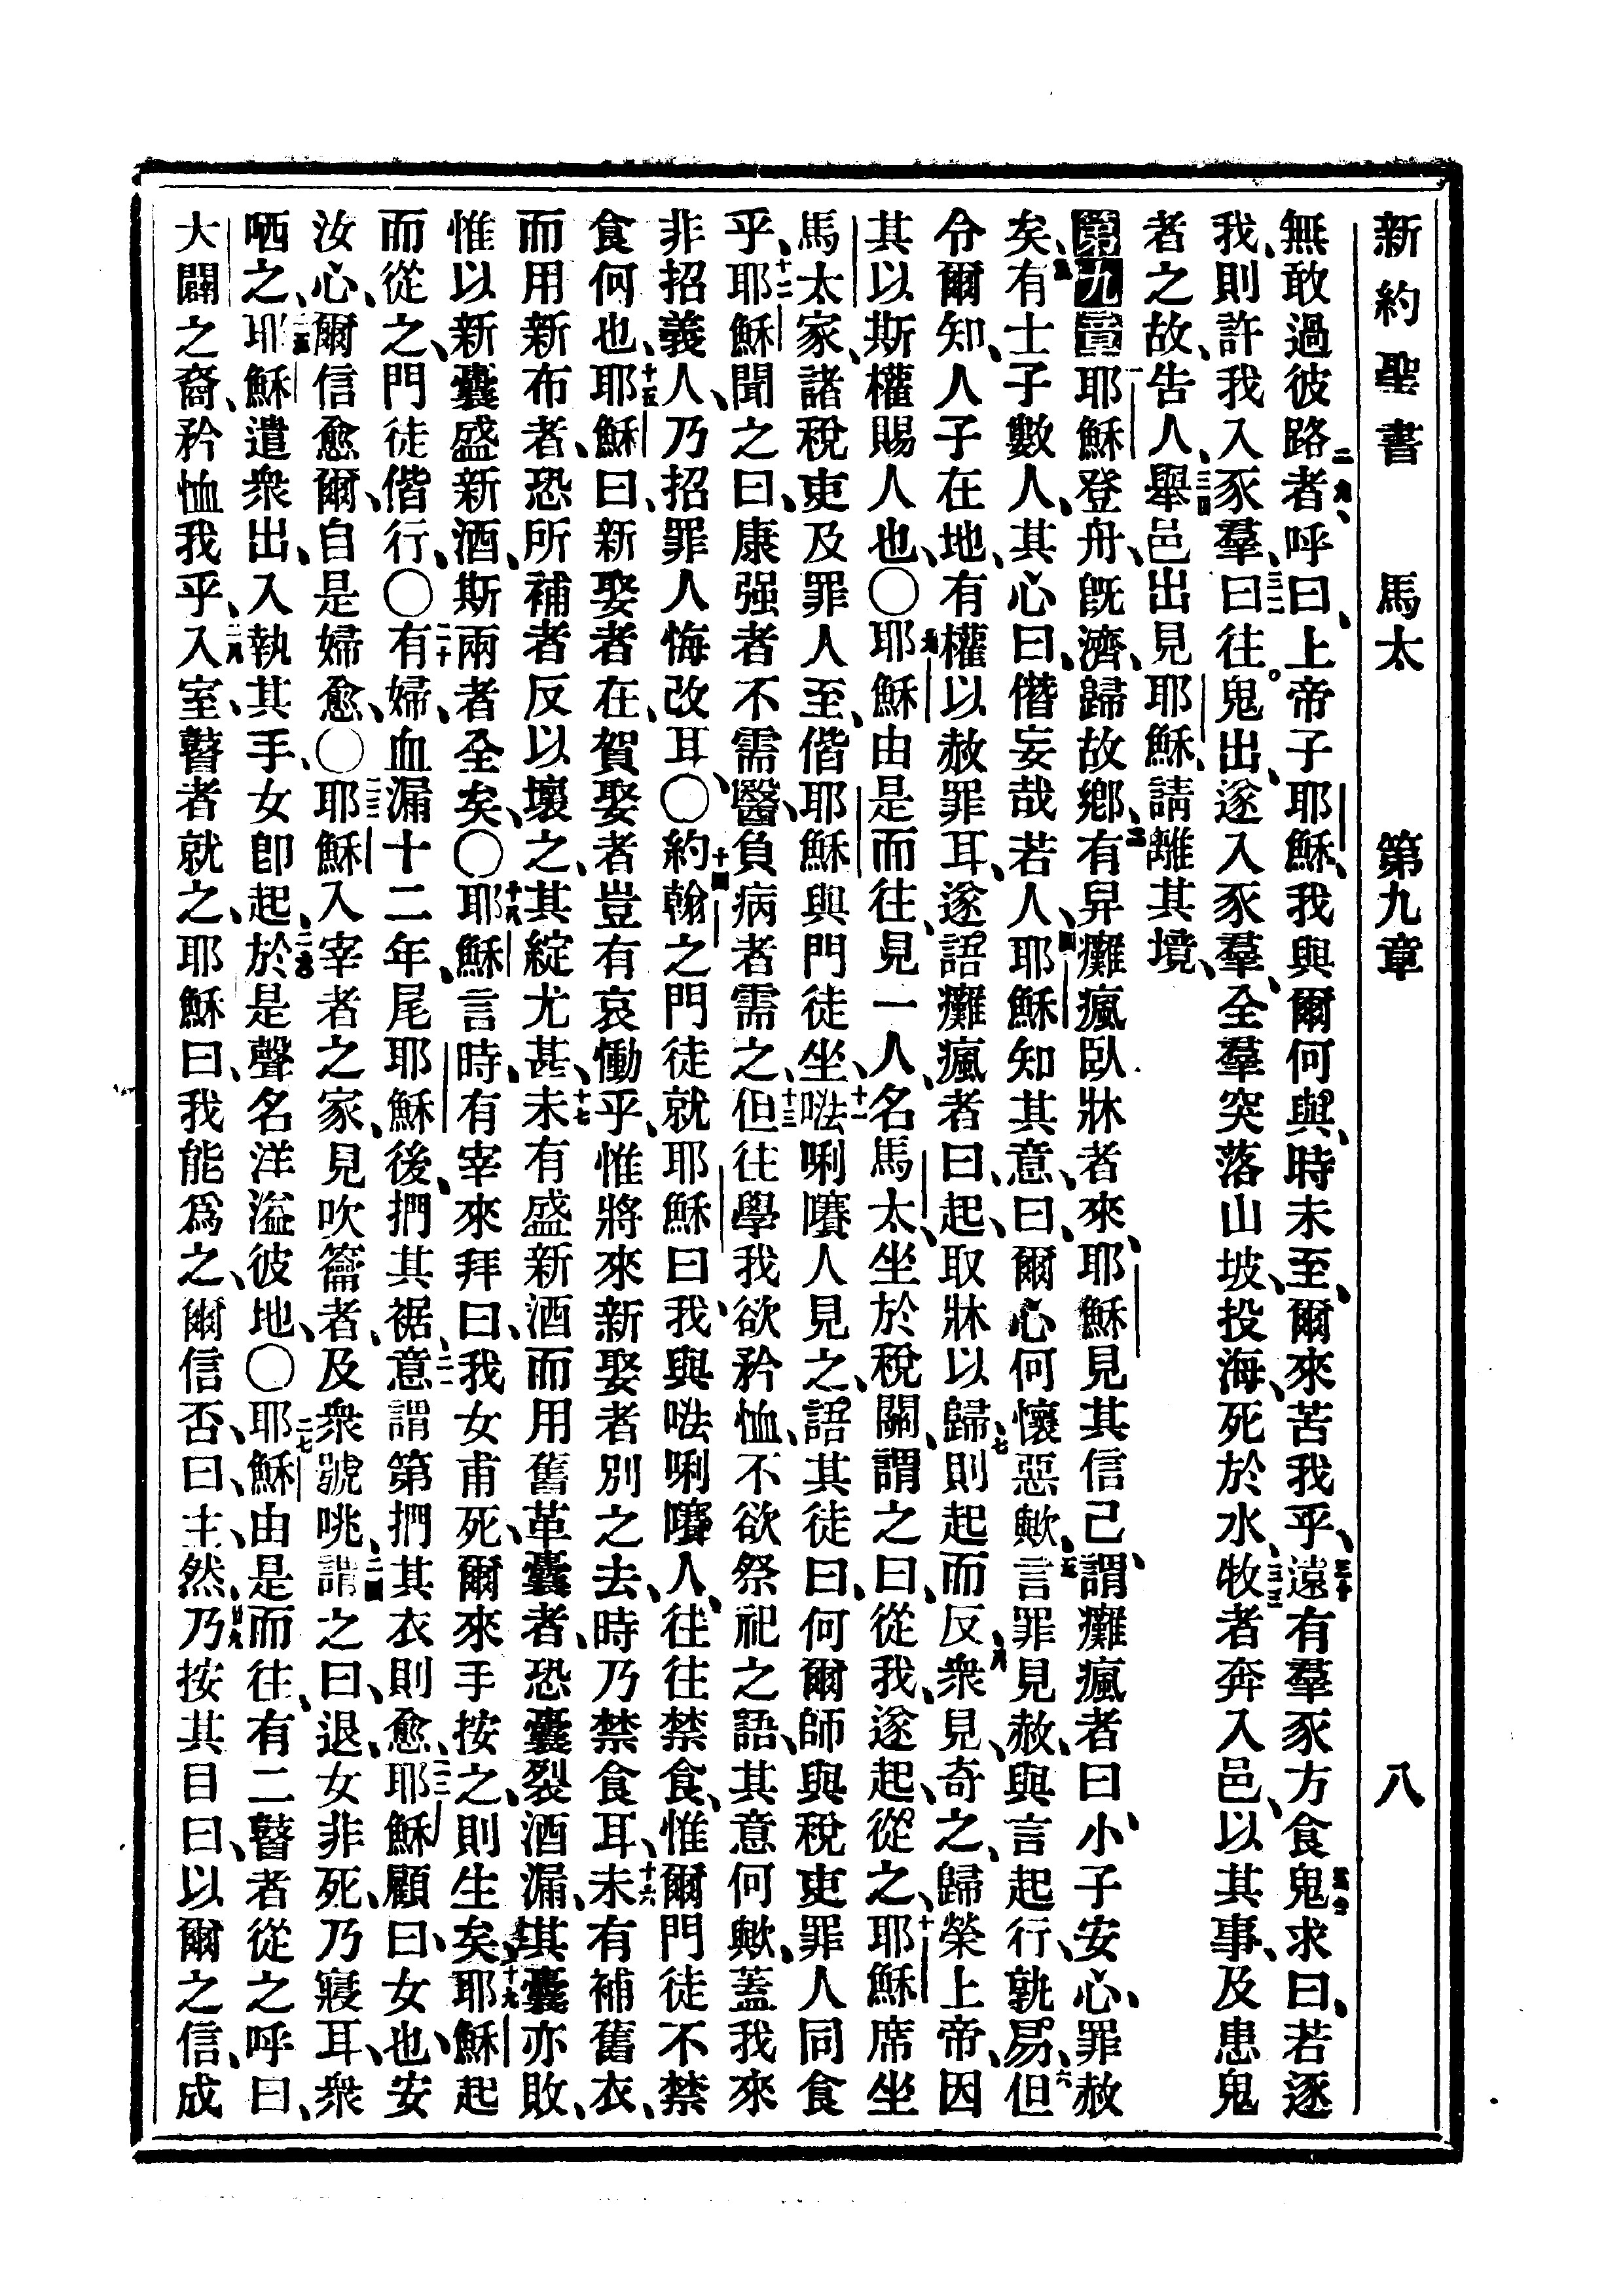 新約聖書 馬太 第九章 八
無敢過彼路者、二九呼曰、上帝子耶穌、我與爾何與、時未至、爾來苦我乎、三十遠有羣豕方食、三一鬼求曰、若逐
我、則許我入豕羣、三二曰往、鬼出、遂入豕羣、全羣突落山坡、投海、死於水、三三牧者奔入邑、以其事、及患鬼
者之故、告人、三四舉邑出見耶穌、請離其境、
第九章耶穌登舟、旣濟、歸故鄉、二有舁癱瘋臥牀者來、耶穌見其信己、謂癱瘋者曰、小子安心、罪赦
矣、三有士子數人、其心曰、僭妄哉若人、四耶穌知其意、曰、爾心何懷惡歟、五言罪見赦、與言起行、孰易、六但
令爾知、人子在地、有權以赦罪耳、遂語癱瘋者曰、起、取牀以歸、七則起而反、八衆見、奇之、歸榮上帝、因
其以斯權賜人也、〇九耶穌由是而往、見一人、名馬太、坐於稅關、謂之曰、從我、遂起、從之、十耶穌席坐
馬太家、諸稅吏及罪人至、偕耶穌與門徒坐、十一𠵽唎㘔人見之、語其徒曰、何爾師與稅吏罪人同食
乎、十二耶穌聞之曰、康强者不需醫、負病者需之、十三但往學我欲矜恤、不欲祭祀之語、其意何歟、蓋我來
非招義人、乃招罪人悔改耳、〇十四約翰之門徒就耶穌曰、我與𠵽唎㘔人、往往禁食、惟爾門徒不禁
食何也、十五耶穌曰、新娶者在、賀娶者豈有哀慟乎、惟將來新娶者別之去、時乃禁食耳、十六未有補舊衣、
而用新布者、恐所補者反以壞之、其綻尤甚、十七未有盛新酒而用舊革囊者、恐囊裂酒漏、其囊亦敗、
惟以新囊盛新酒、斯兩者全矣、〇十八耶穌言時、有宰來拜曰、我女甫死、爾來手按之、則生矣、十九耶穌起
而從之、門徒偕行、〇二十有婦、血漏十二年、尾耶穌後、捫其裾、二一意謂第捫其衣則愈、二二耶穌顧曰、女也、安
汝心、爾信愈爾、自是婦愈、〇二三耶穌入宰者之家、見吹籥者、及衆號咷、二四謂之曰、退、女非死、乃寢耳、衆
哂之、二五耶穌遣衆出、入執其手、女卽起、二六於是聲名洋溢彼地、〇二七耶穌由是而往、有二瞽者從之呼曰、
大闢之裔、矜恤我乎、二八入室、瞽者就之、耶穌曰、我能爲之、爾信否、曰、主、然、二九乃按其目曰、以爾之信、成